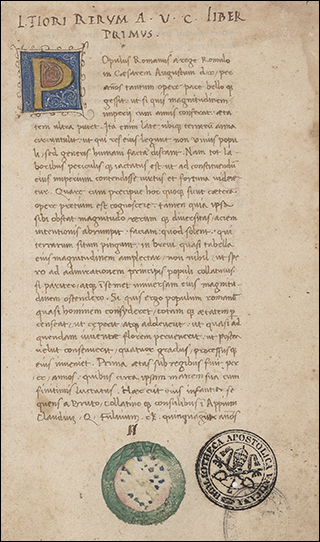 L FLORI RERUM A · V · C LIBER
PRIMUS.
Populus Romanus a rege Romulo
in Caesarem Augustum
annos tantum opere pace belloq
gessit. ut si quis magnitudinem
imperii cum annis conferat. aeta
tem ultra putet. Ita enim late ubiq terrarum arma
circumtulit. ut qui res eius legunt non unius popu
li. sed generis humani facta discant. Nam tot la
boribus periculisq iactatus est. ut ad constituendum
eius imperium contendisse virtus et fortuna videre
tur. Quare cum precipue hoc quoq sicut caetera
opere pretium est cognoscere. tamen quia ipsa
sibi obstat magnitudo rerum q diversitas aciem
intentionis abrumpit. faciam quod solent qui
terrarum situs pingunt. in brevi quasi tabella
eius magnitudinem amplectar. non nihil ut spe
ro ad admirationem principis populi collaturus
si pariter atq insimul universam eius magnitu
dinem ostendero. Si quis ergo populum romanum
quasi hominem consyderet. totamq aetatem
censeat. ut ceperit. utq adoleverit. ut quasi ad
quendam iuventae florem pervenerit. ut postea
velut consenuerit. quatuor gradus processusq
eius inveniet. Prima aetas sub regibus fuit pro
pe annos. quibus circa ipsam matrem suam cum
finitimis luctatus. Haec erit eius infantia. se
quens a Bruto Collatinoq consulibus i Appium
Claudium Q. Fulvium annos
BIBLIOTHECA APOSTOLICA VATICANA